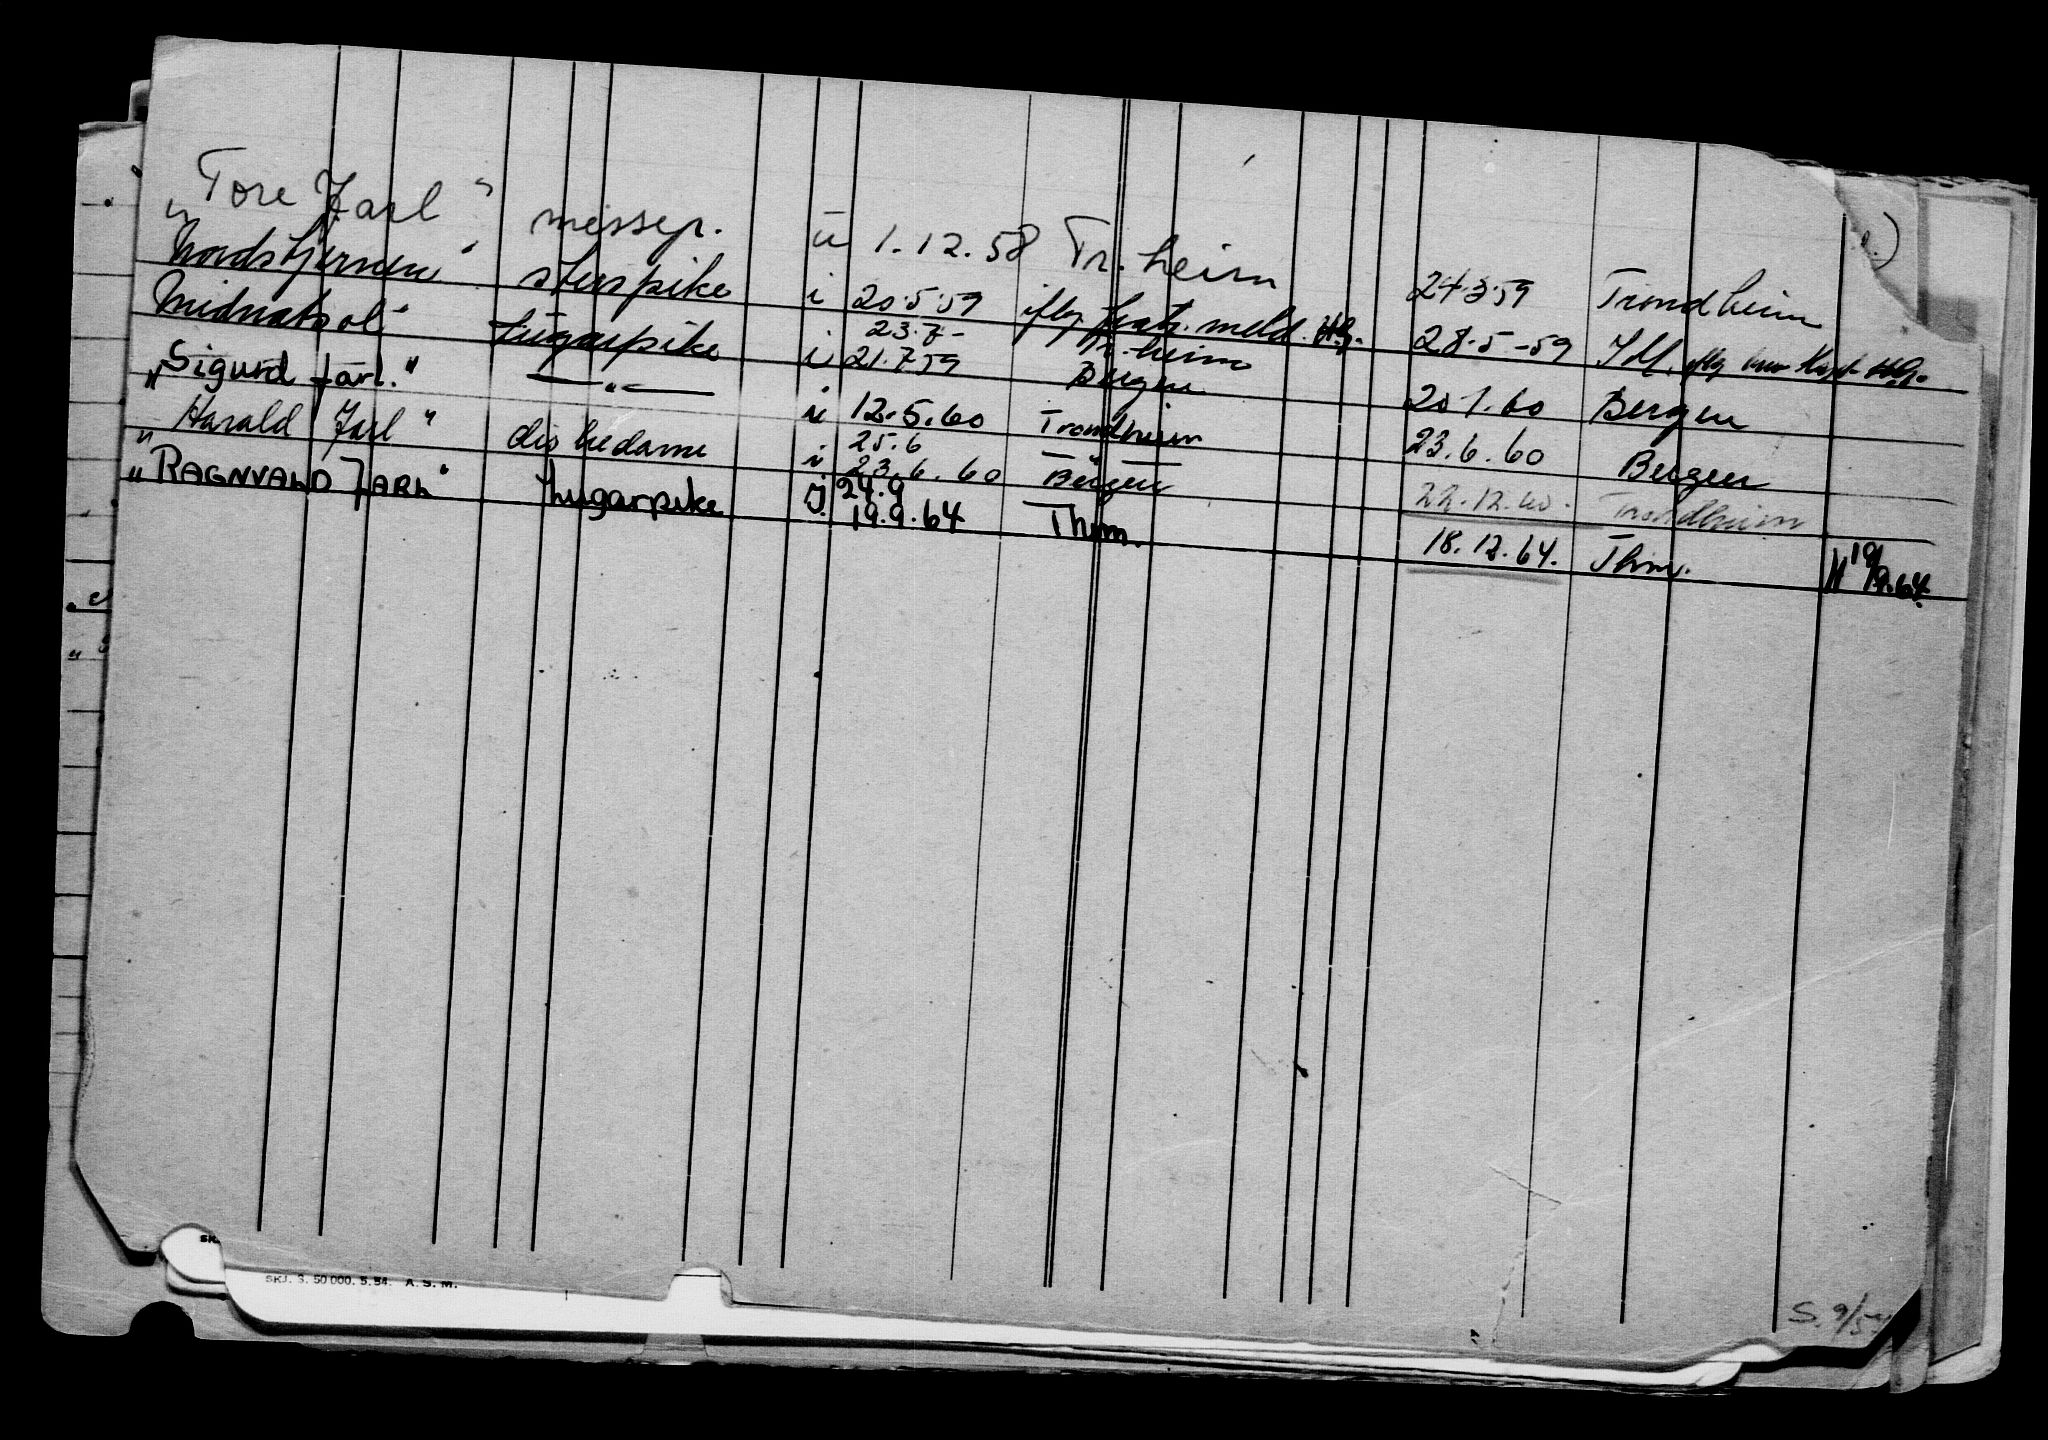 „Tore Jarl" messep. u 1.12.58 Tr.heim 24.3.59 Trondheim
Nordstjernen" i 20.5.59 iflg. meld. 28.5-59 iflg.
23.7-
Midnatsol" Lugarpike i 21.7.59 Tr.heim Bergen 20.1.60 Bergen
„Sigurd Jarl." —"— u 12.5.60 Trondheim 23.6.60 Bergen
25.6 —"—
„Harald Jarl" diskedame i 23.6.60 Bergen 22.12.60. Trondheim
24.9
„RAGNVALD JARL" Lugarpike J. 19.9.64 Thm. 18.12.64. Thm. 19/9.64.
SKJ. 3. 50 000. 5.54. A. S. M.
S. 9/54